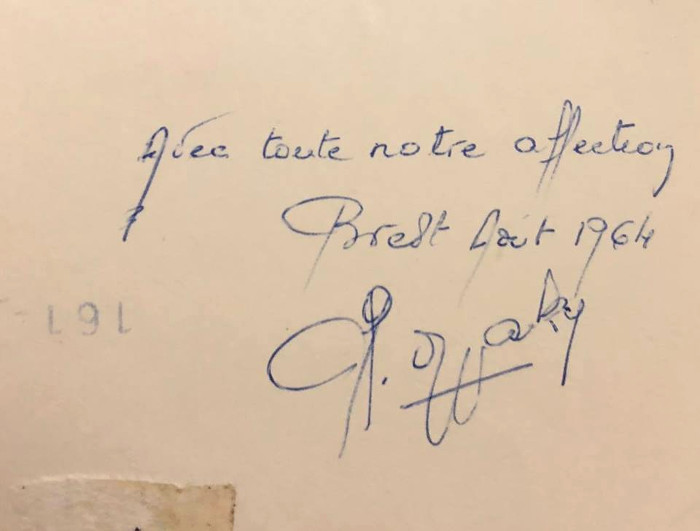 Avec toute notre affection
Brest Août 1964
191